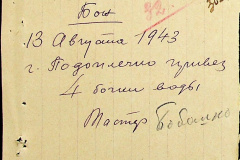 Бон
32.
13 Августа 1943
г. Подоплечно привез
4 бочки воды
Мастер